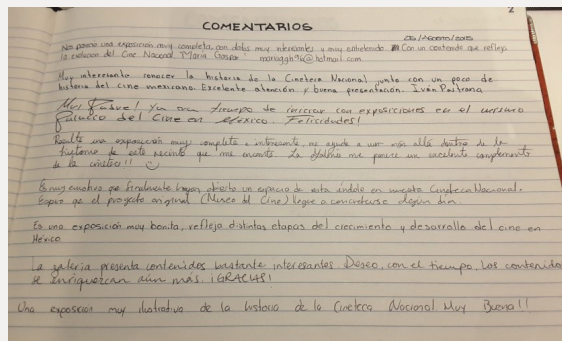 2
COMENTARIOS
06/Agosto/2015
Nos pareció una exposición muy completa, con datos muy interesantes y muy entretenido. Con un contenido que refleja
la evolución del Cine Nacional María Gaspar mariaggh96@hotmail.com
Muy interesante conocer la historia de la Cineteca Nacional junto con un poco de
historia del cine mexicano. Excelente atención y buena presentación. Iván Pastrana
Muy Padre! Ya era tiempo de iniciar con exposiciones en el mismo
Palacio del Cine en México. Felicidades!
Resulta una exposición muy completa e interesante, me ayuda a ver más allá dentro de la
historia de este recinto que me encanta. La me parece un excelente complemento
de la cineteca!!
Es muy emotivo que finalmente hayan abierto un espacio de esta índole en nuestra Cineteca Nacional.
Espero que el proyecto original (Museo del Cine) llegue a concretarse algún día.
Es una exposición muy bonita, refleja distintas etapas del crecimiento y desarrollo del cine en
México
La galería presenta contenidos bastante interesantes. Deseo, con el tiempo, los contenidos
se enriquezcan aún más. ¡GRACIAS!
Una exposición muy ilustrativa de la historia de la Cineteca Nacional Muy Buena!!